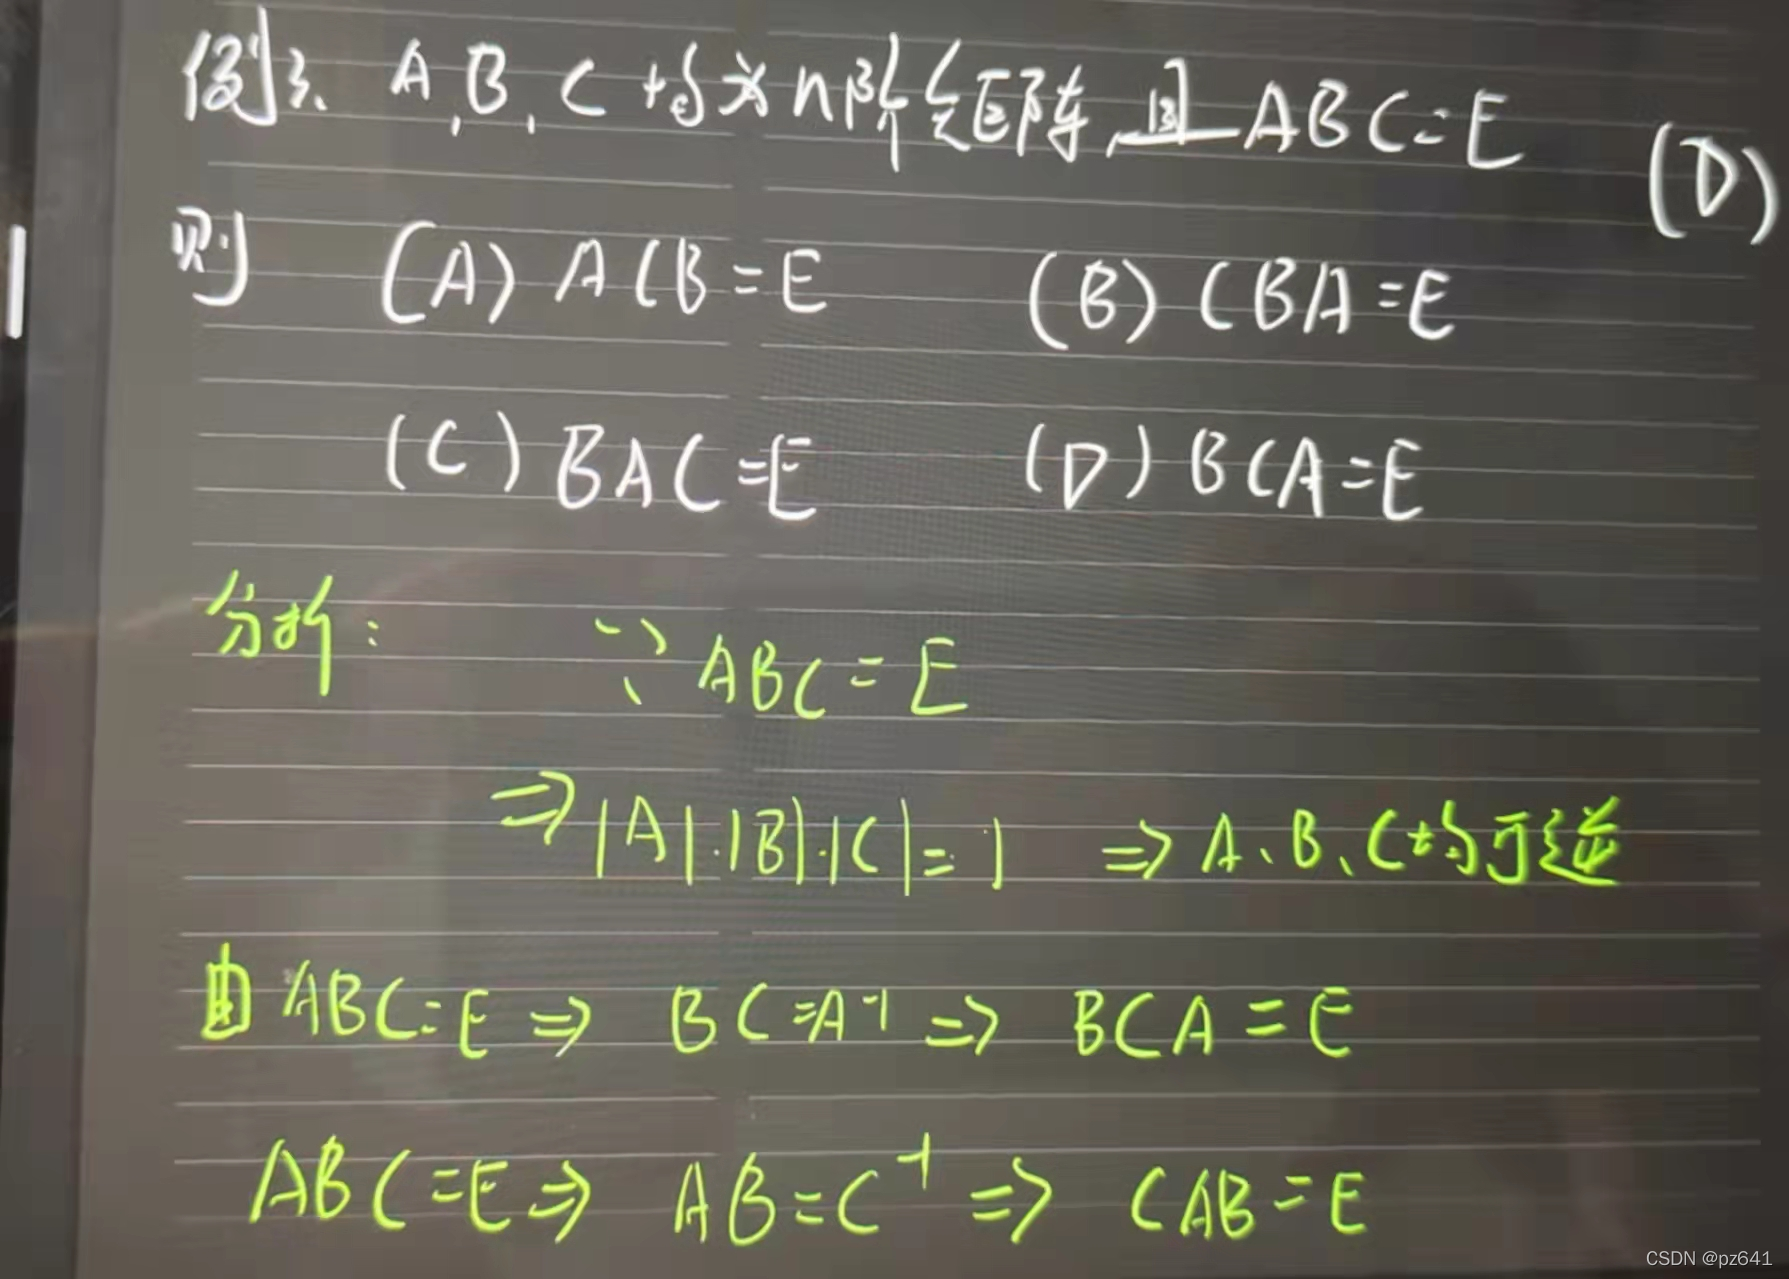 例3、A,B,C均为n阶矩阵,且ABC=E (D)
则 (A) ACB=E (B) CBA=E
(C) BAC=E (D) BCA=E
分析: ∵ABC=E
⇒|A|·|B|·|C|=1 ⇒A、B、C均可逆
由ABC=E⇒BC=A⁻¹⇒BCA=E
ABC=E⇒AB=C⁻¹⇒CAB=E
CSDN @pz641